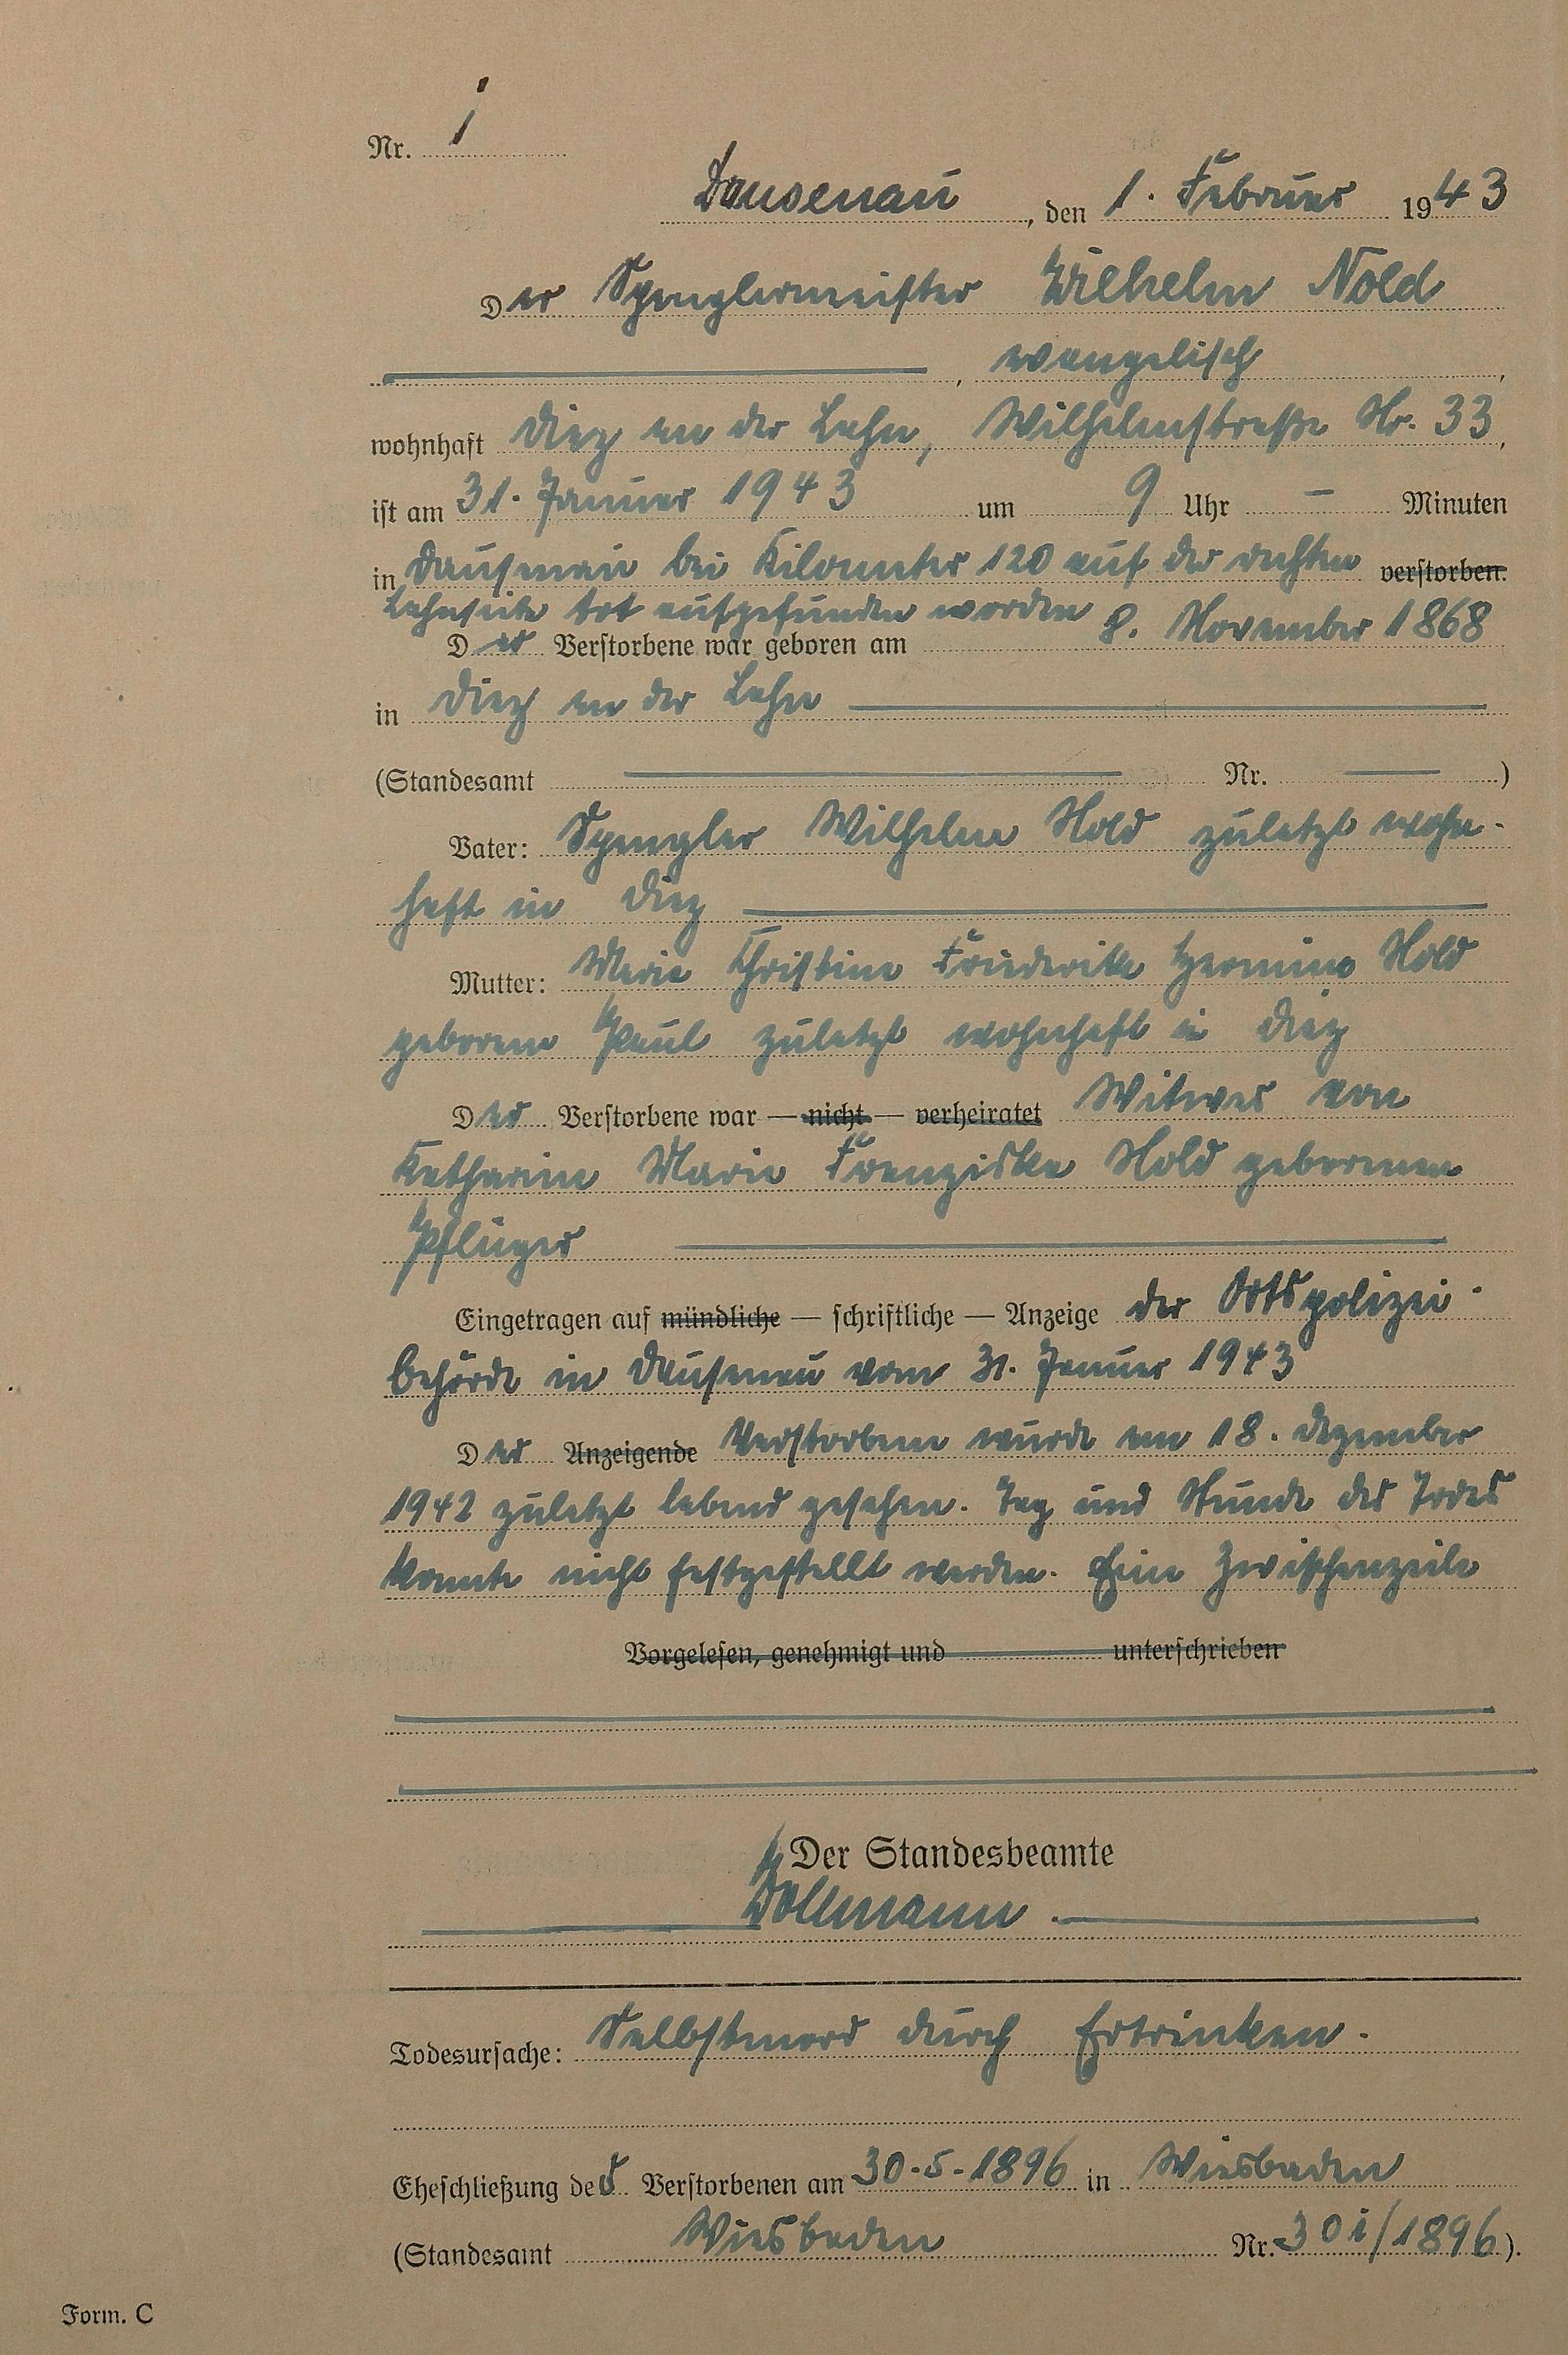 Nr. 1
Dausenau, den 1. Februar 1943
Der Spenglermeister Wilhelm Nold
, evangelisch,
wohnhaft Diez an der Lahn, Wilhelmstraße Nr. 33,
ist am 31. Januar 1943 um 9 Uhr – Minuten
in Dausenau bei Kilometer 120 auf der rechten verstorben.
Lahnseite tot aufgefunden worden
Der Verstorbene war geboren am 8. November 1868
in Diez an der Lahn
(Standesamt Nr. )
Vater: Spengler Wilhelm Nold zuletzt wohn-
haft in Diez
Mutter: Marie Christine Friederike Hermine Nold
geborene Paul zuletzt wohnhaft in Diez
Der Verstorbene war — nicht — verheiratet Witwer von
Katharine Marie Franziska Nold geborenen
Pflüger
Eingetragen auf mündliche — schriftliche — Anzeige der Ortspolizei-
behörde in Dausenau vom 31. Januar 1943
Der Anzeigende Verstorbene wurde am 18. Dezember
1942 zuletzt lebend gesehen. Tag und Stunde des Todes
konnte nicht festgestellt werden. Eine Zwischenzeile
Vorgelesen, genehmigt und unterschrieben
Der Standesbeamte
Döllmann.
Todesursache: Selbstmord durch Ertrinken.
Eheschließung des Verstorbenen am 30.5.1896 in Wiesbaden
(Standesamt Wiesbaden Nr. 301/1896).
Form. C